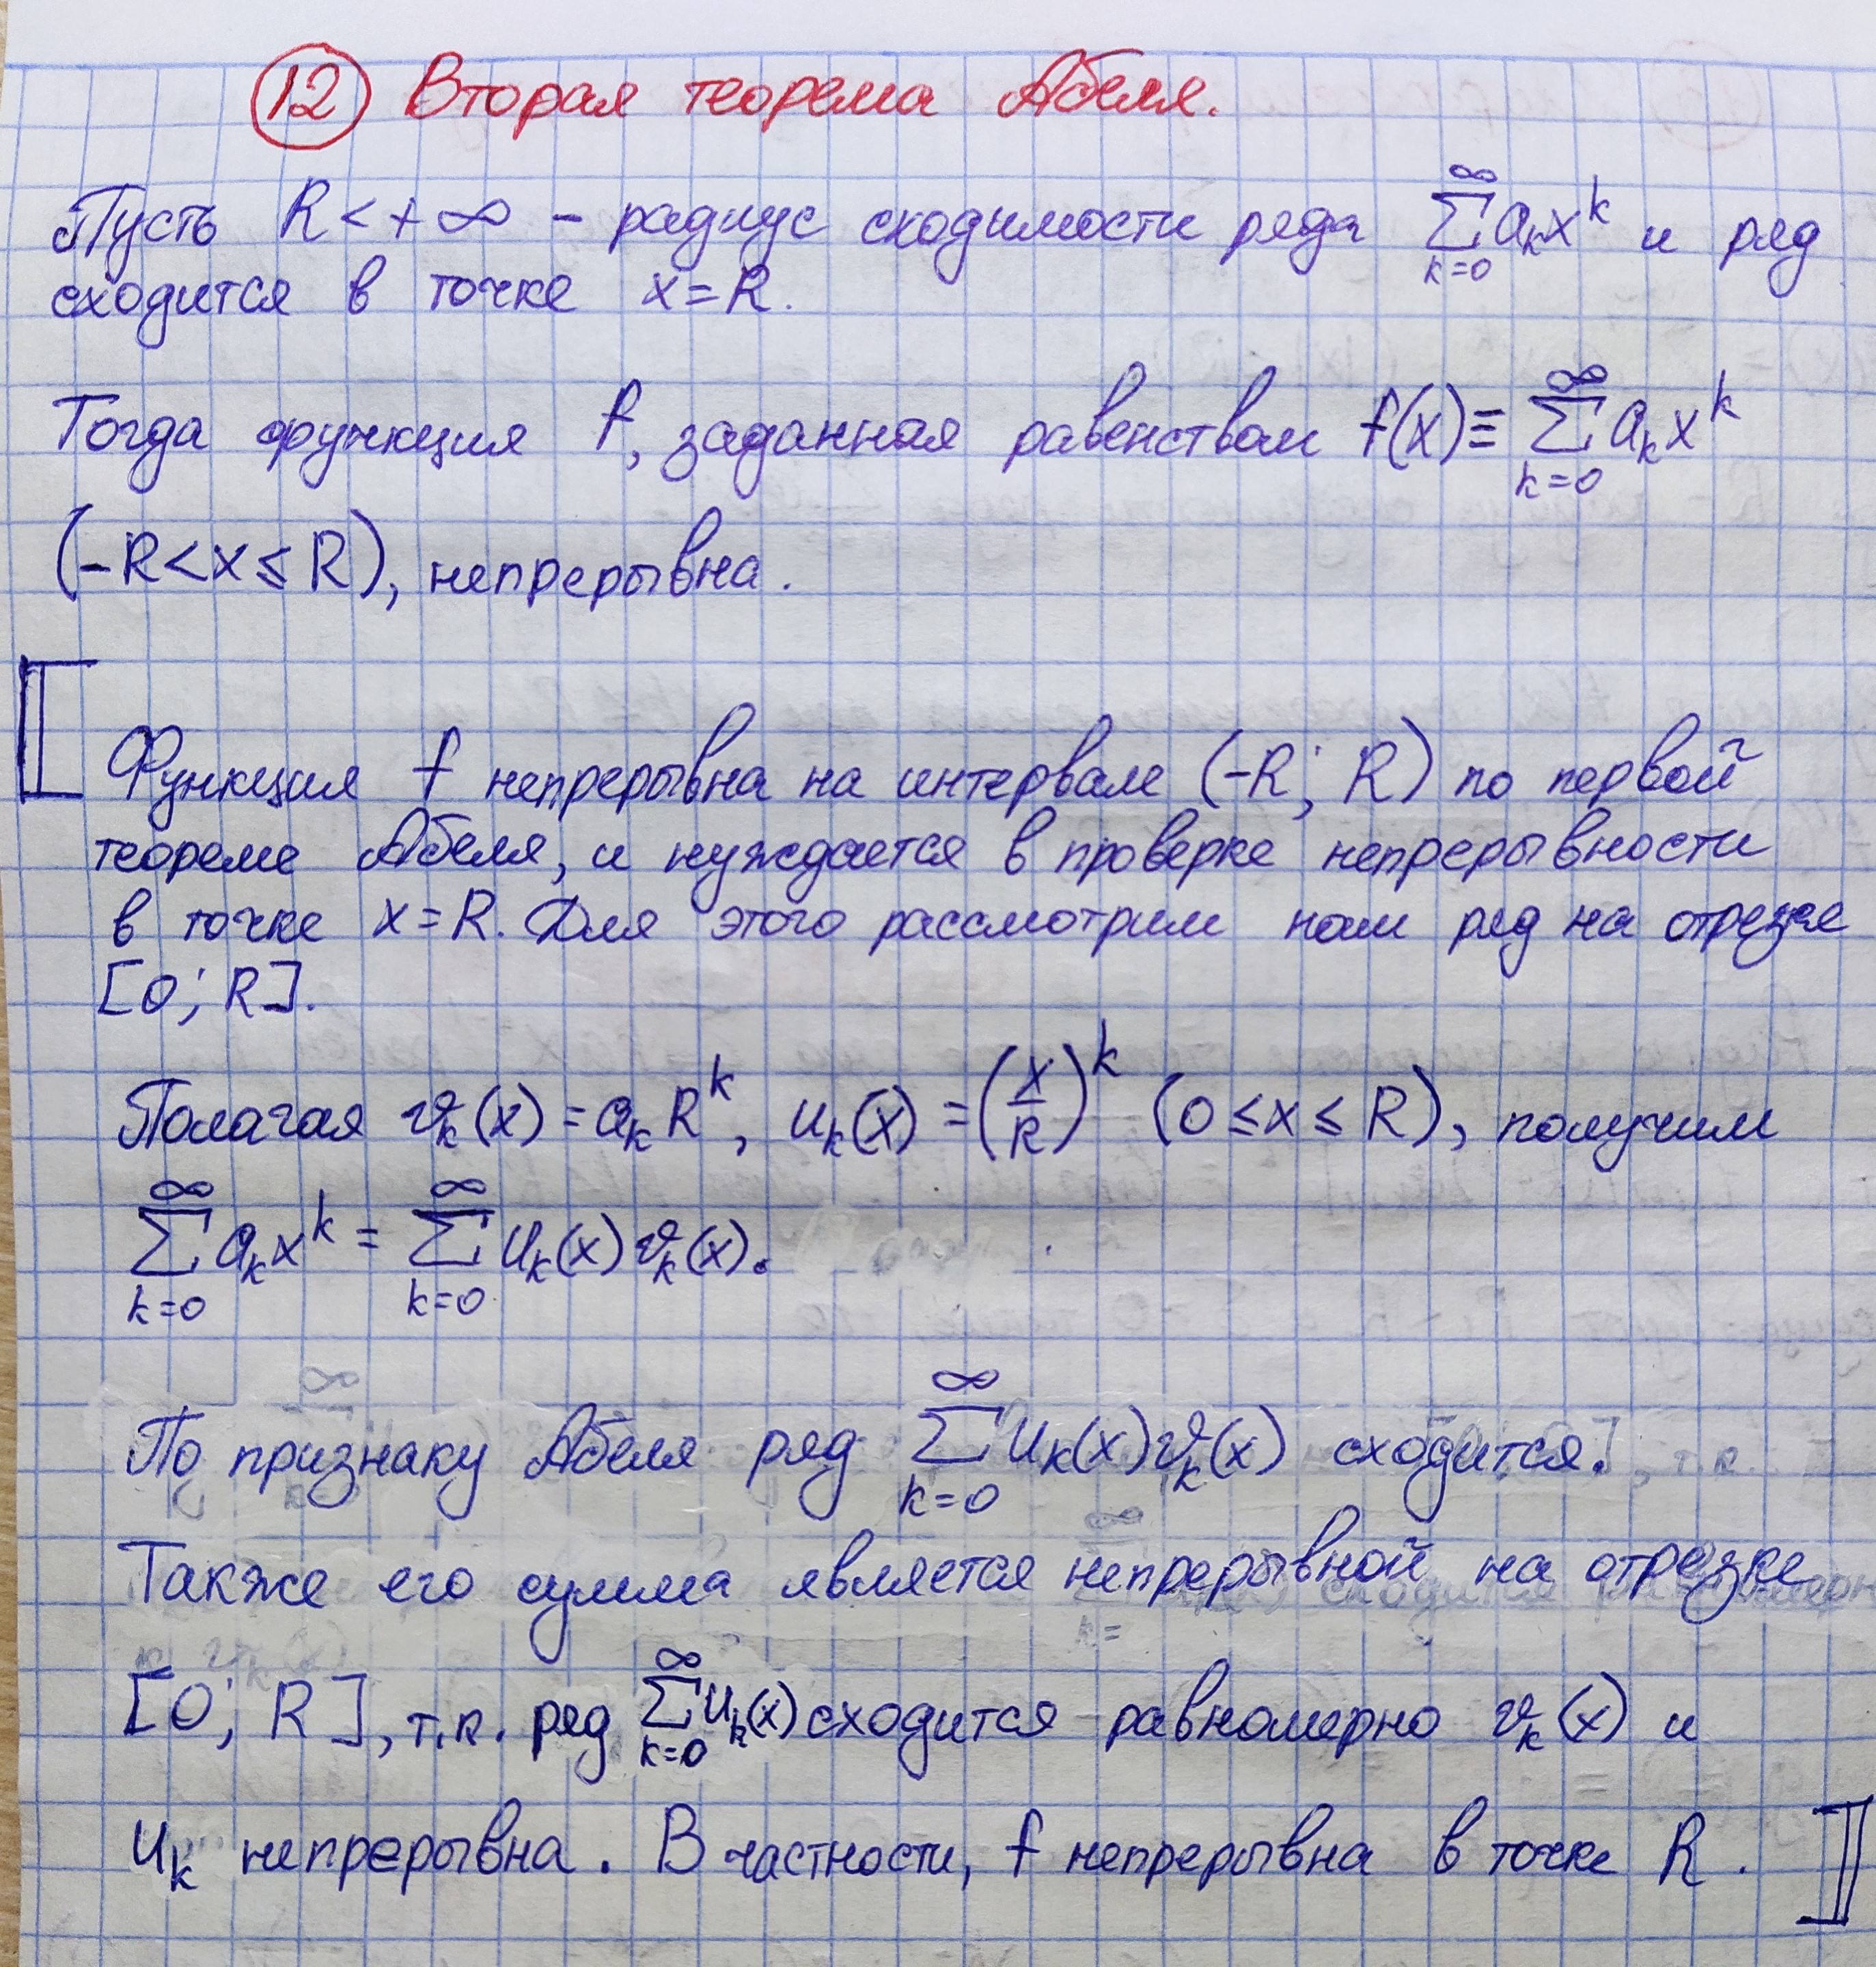 12 Вторая теорема Абеля.
Пусть R < + ∞ – радиус сходимости ряда ∑_{k=0}^{∞} a_k x^k и ряд
сходится в точке x = R.
Тогда функция f, заданная равенством f(x) ≡ ∑_{k=0}^{∞} a_k x^k
(-R < x ≤ R), непрерывна.
Функция f непрерывна на интервале (-R; R) по первой
теореме Абеля, и нуждается в проверке непрерывности
в точке x = R. Для этого рассмотрим наш ряд на отрезке
[0; R].
Полагая v_k(x) = a_k R^k, u_k(x) = (x/R)^k (0 ≤ x ≤ R), получим
∑_{k=0}^{∞} a_k x^k = ∑_{k=0}^{∞} u_k(x) v_k(x).
По признаку Абеля ряд ∑_{k=0}^{∞} u_k(x) v_k(x) сходится.
Также его сумма является непрерывной на отрезке
[0; R], т.к. ряд ∑_{k=0}^{∞} u_k(x) сходится равномерно v_k(x) и
u_k непрерывна. В частности, f непрерывна в точке R.